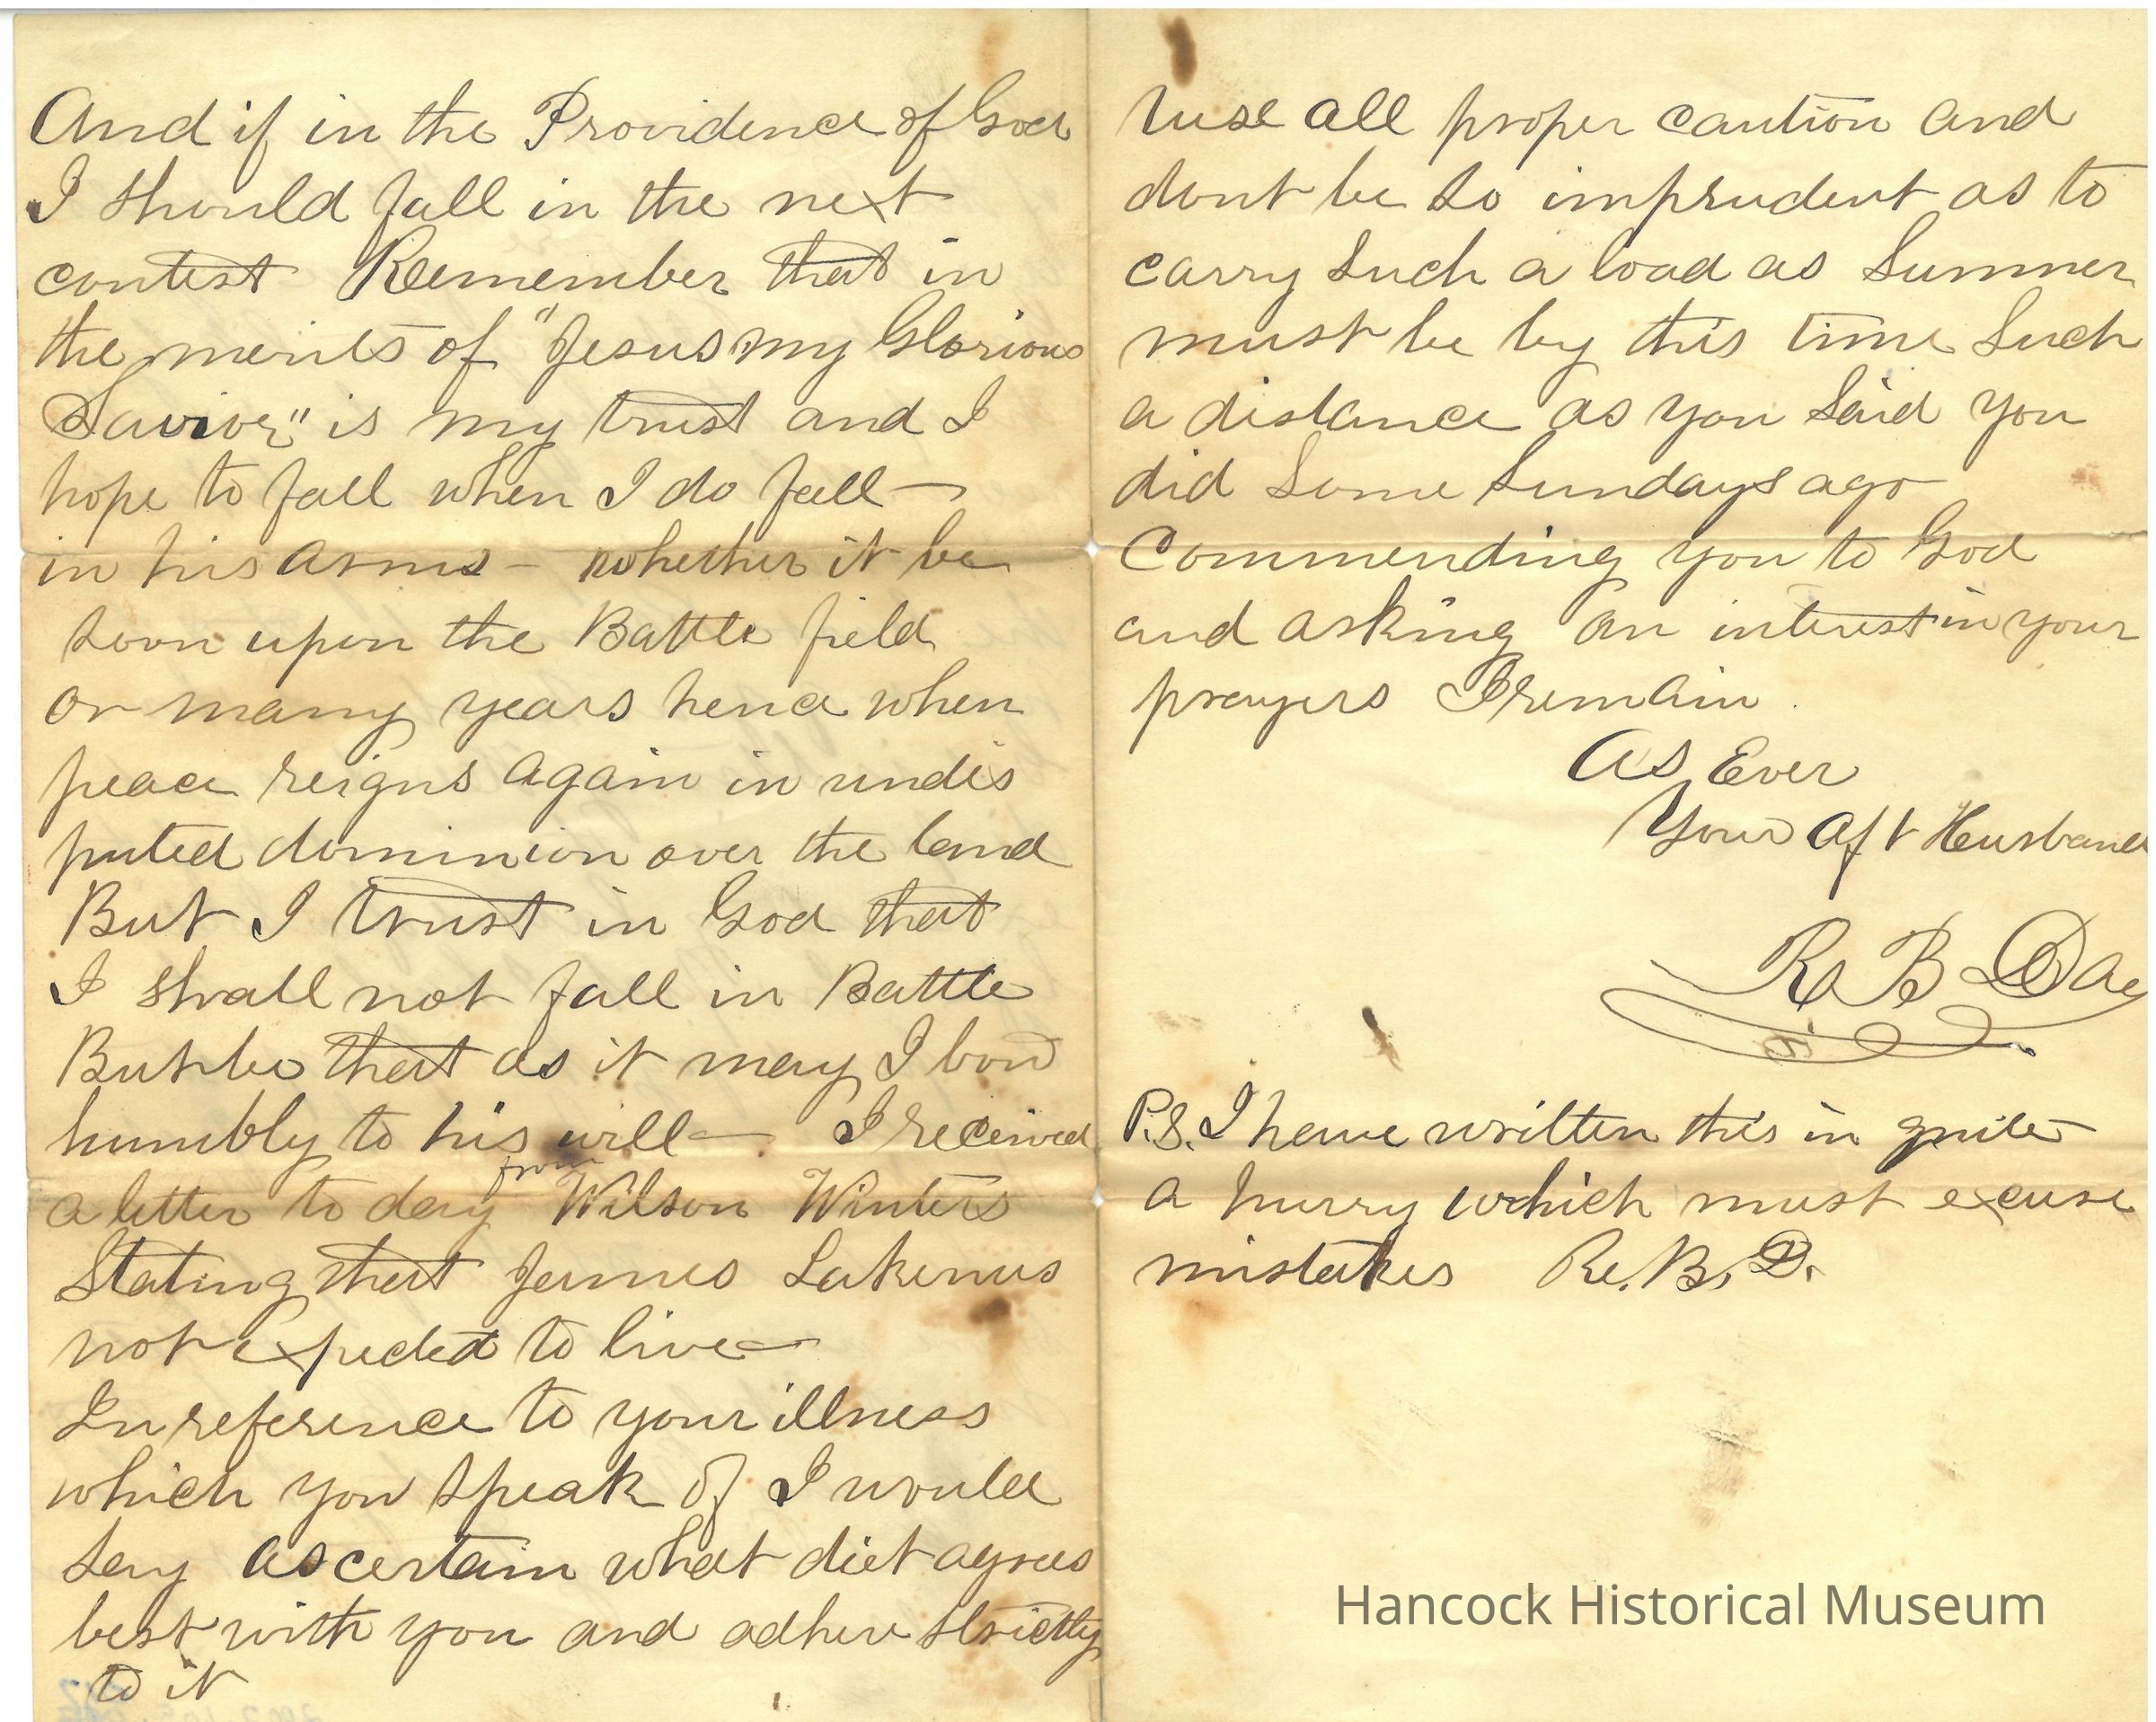 And if in the Providence of God
I should fall in the next
contest Remember that in
the merits of "Jesus my Glorious
Savior" is my trust and I
hope to fall when I do fall —
in his arms — whether it be
soon upon the Battle field
or many years hence when
peace reigns again in undis
puted dominion over the land
But I trust in God that
I shall not fall in Battle
But be that as it may I bow
humbly to his will — I received
a letter to day from Wilson Winters
Stating that James Lakenus
not expected to live —
In reference to your illness
which you speak of I would
say ascertain what diet agrees
best with you and adhere strictly
to it
use all proper caution and
dont be so imprudent as to
carry such a load as Sumner
must be by this time such
a distance as you said you
did some Sundays ago
Commending you to God
and asking an interest in your
prayers I remain.
As Ever
Your Aft Husband
R B Da
P.S. I have written this in quite
a hurry which must excuse
mistakes R. B. D.
Hancock Historical Museum